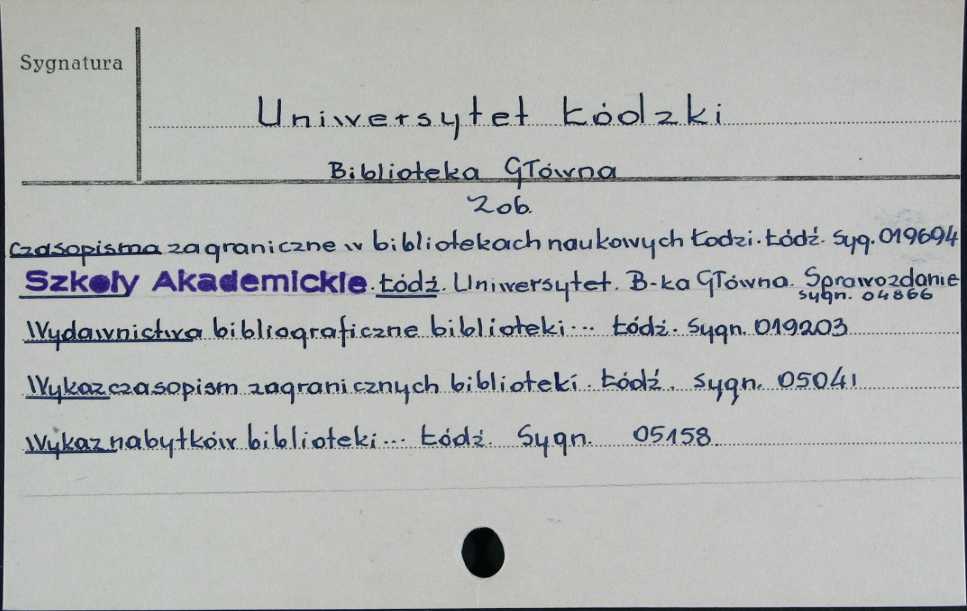 Sygnatura
Uniwersytet Łódzki
Biblioteka Główna
Zob.
Czasopisma zagraniczne w bibliotekach naukowych Łodzi. Łódź. Syg. 019694
Szkoły Akademickie. Łódź. Uniwersytet. B-ka Główna. Sprawozdanie
sygn. 04866
Wydawnictwa bibliograficzne biblioteki... Łódź. Sygn. 019203
Wykaz czasopism zagranicznych biblioteki. Łódź. Sygn. 05041
Wykaz nabytków biblioteki... Łódź. Sygn. 05158